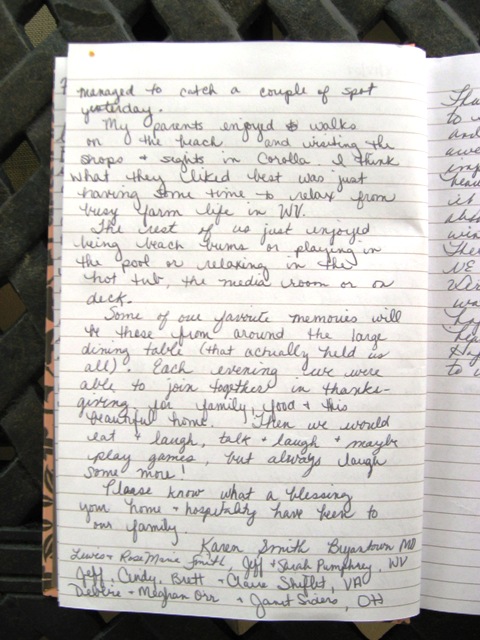 managed to catch a couple of spot
yesterday.
My parents enjoyed walks
on the beach and visiting the
shops + sights in Corolla. I think
what they liked best was just
having some time to relax from
busy farm life in WV.
The rest of us just enjoyed
being beach bums or playing in
the pool or relaxing in the
hot tub, the media room or on
deck.
Some of our favorite memories will
be those from around the large
dining table (that actually held us
all). Each evening we were
able to join together in thanks-
giving for family, food + this
beautiful home. Then we would
eat + laugh, talk + laugh + maybe
play games, but always laugh
some more!
Please know what a blessing
your home + hospitality have been to
our family.
Karen Smith Bryantown MD
Lewis + Rose Marie Smith, Jeff + Sarah Pumphrey, WV
Jeff, Cindy, Brett + Claire Shiflet, VA
Debbie + Meghan Orr + Janet Siders, OH